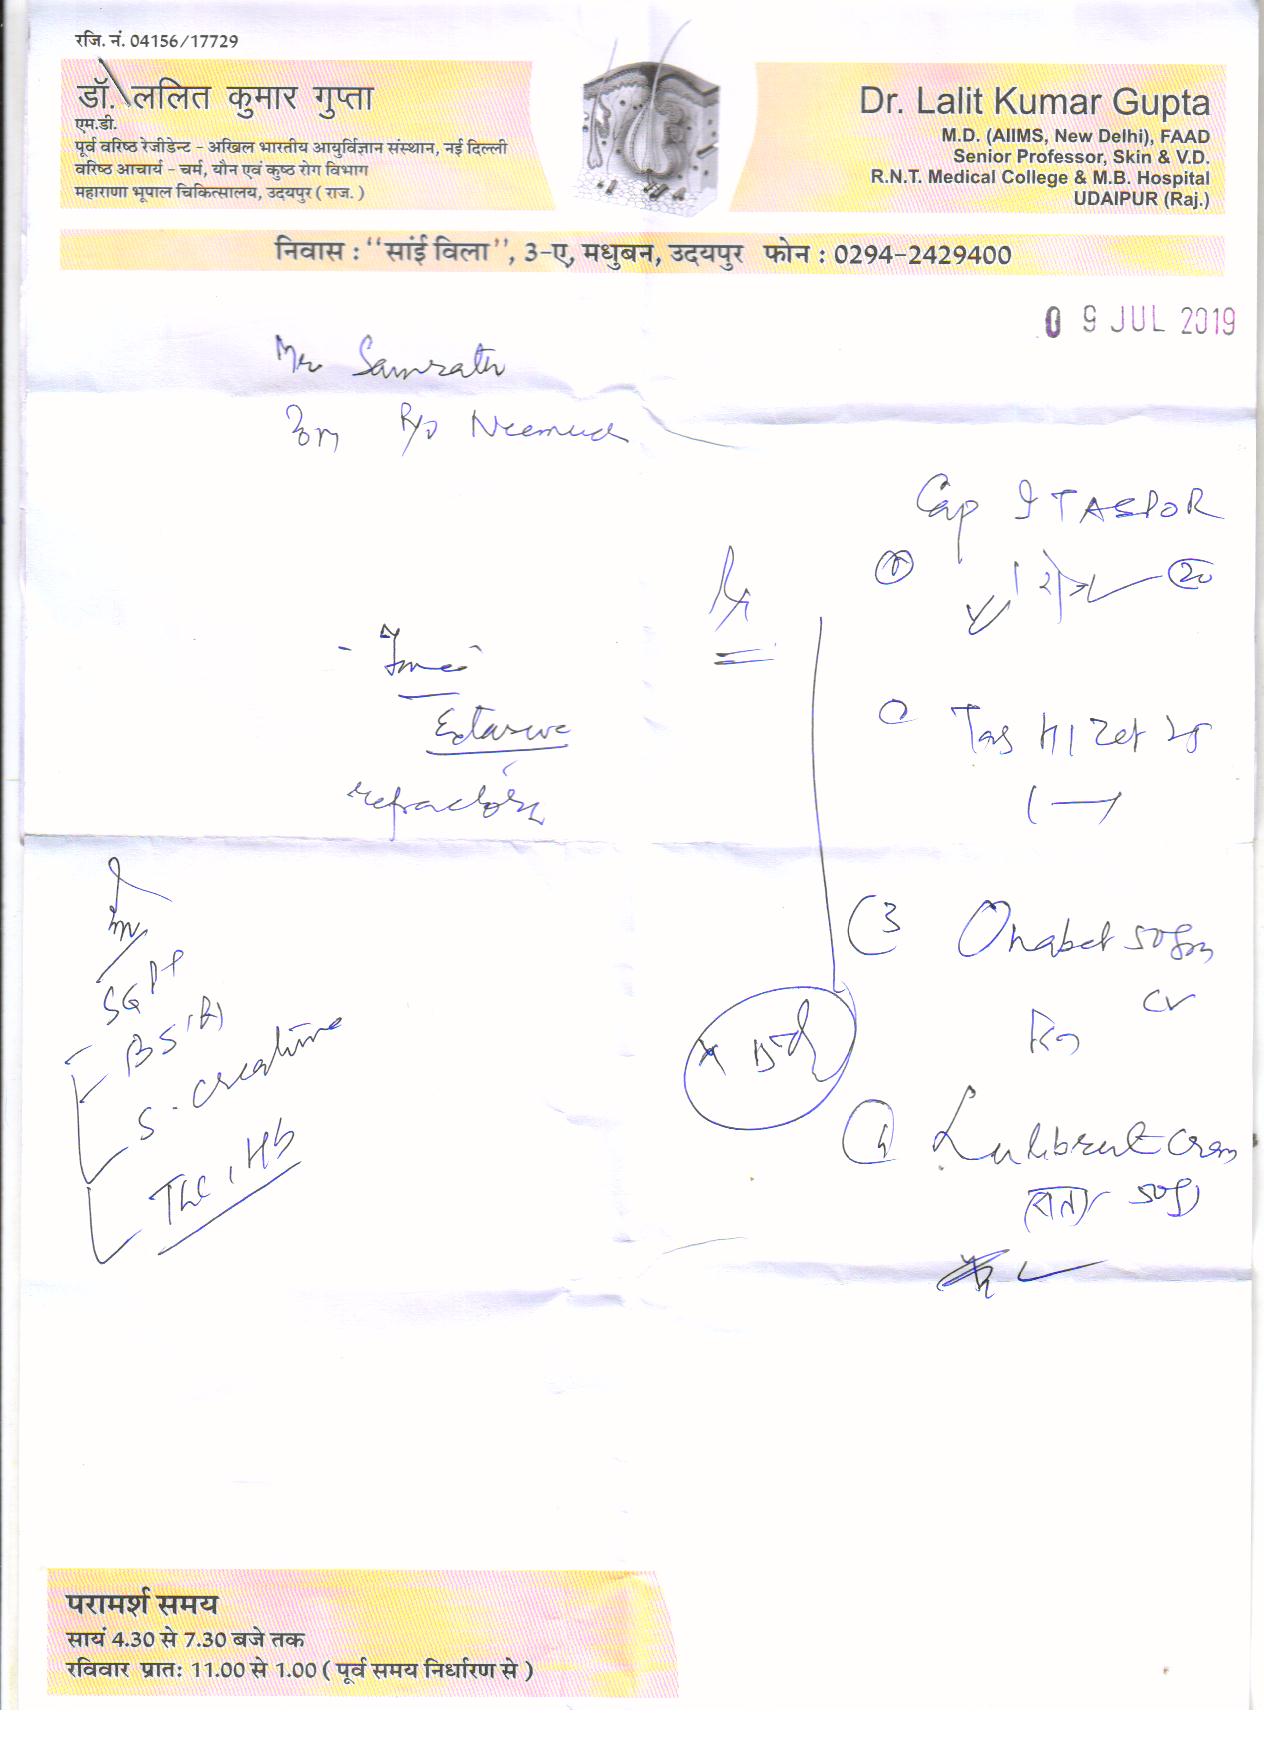 रजि. नं. 04156/17729
डॉ. ललित कुमार गुप्ता
एम.डी.
पूर्व वरिष्ठ रेजीडेन्ट - अखिल भारतीय आयुर्विज्ञान संस्थान, नई दिल्ली
वरिष्ठ आचार्य - चर्म, यौन एवं कुष्ठ रोग विभाग
महाराणा भूपाल चिकित्सालय, उदयपुर ( राज. )
Dr. Lalit Kumar Gupta
M.D. (AIIMS, New Delhi), FAAD
Senior Professor, Skin & V.D.
R.N.T. Medical College & M.B. Hospital
UDAIPUR (Raj.)
निवास : ‘‘सांई विला’’, 3-ए, मधुबन, उदयपुर फोन : 0294-2429400
09 JUL 2019
Mr Samrath
R/o Neemuch
Cap ITASPOR
20
Rx
refractory
(3 Onabet 50gm
SGPT
BS(R)
S. creatinine
TLC, Hb
(4) cream
50g
परामर्श समय
सायं 4.30 से 7.30 बजे तक
रविवार प्रातः 11.00 से 1.00 ( पूर्व समय निर्धारण से )